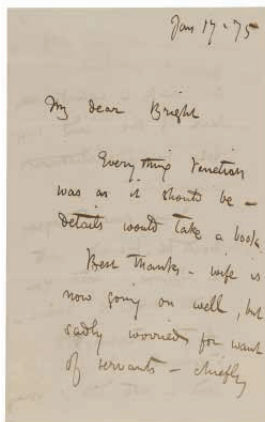 Jan 17 - 75
My dear Bright
Everything Venetian
was as it should be –
details would take a book
Best thanks – wife is
now going on well, but
sadly worried for want
of servants – chiefly